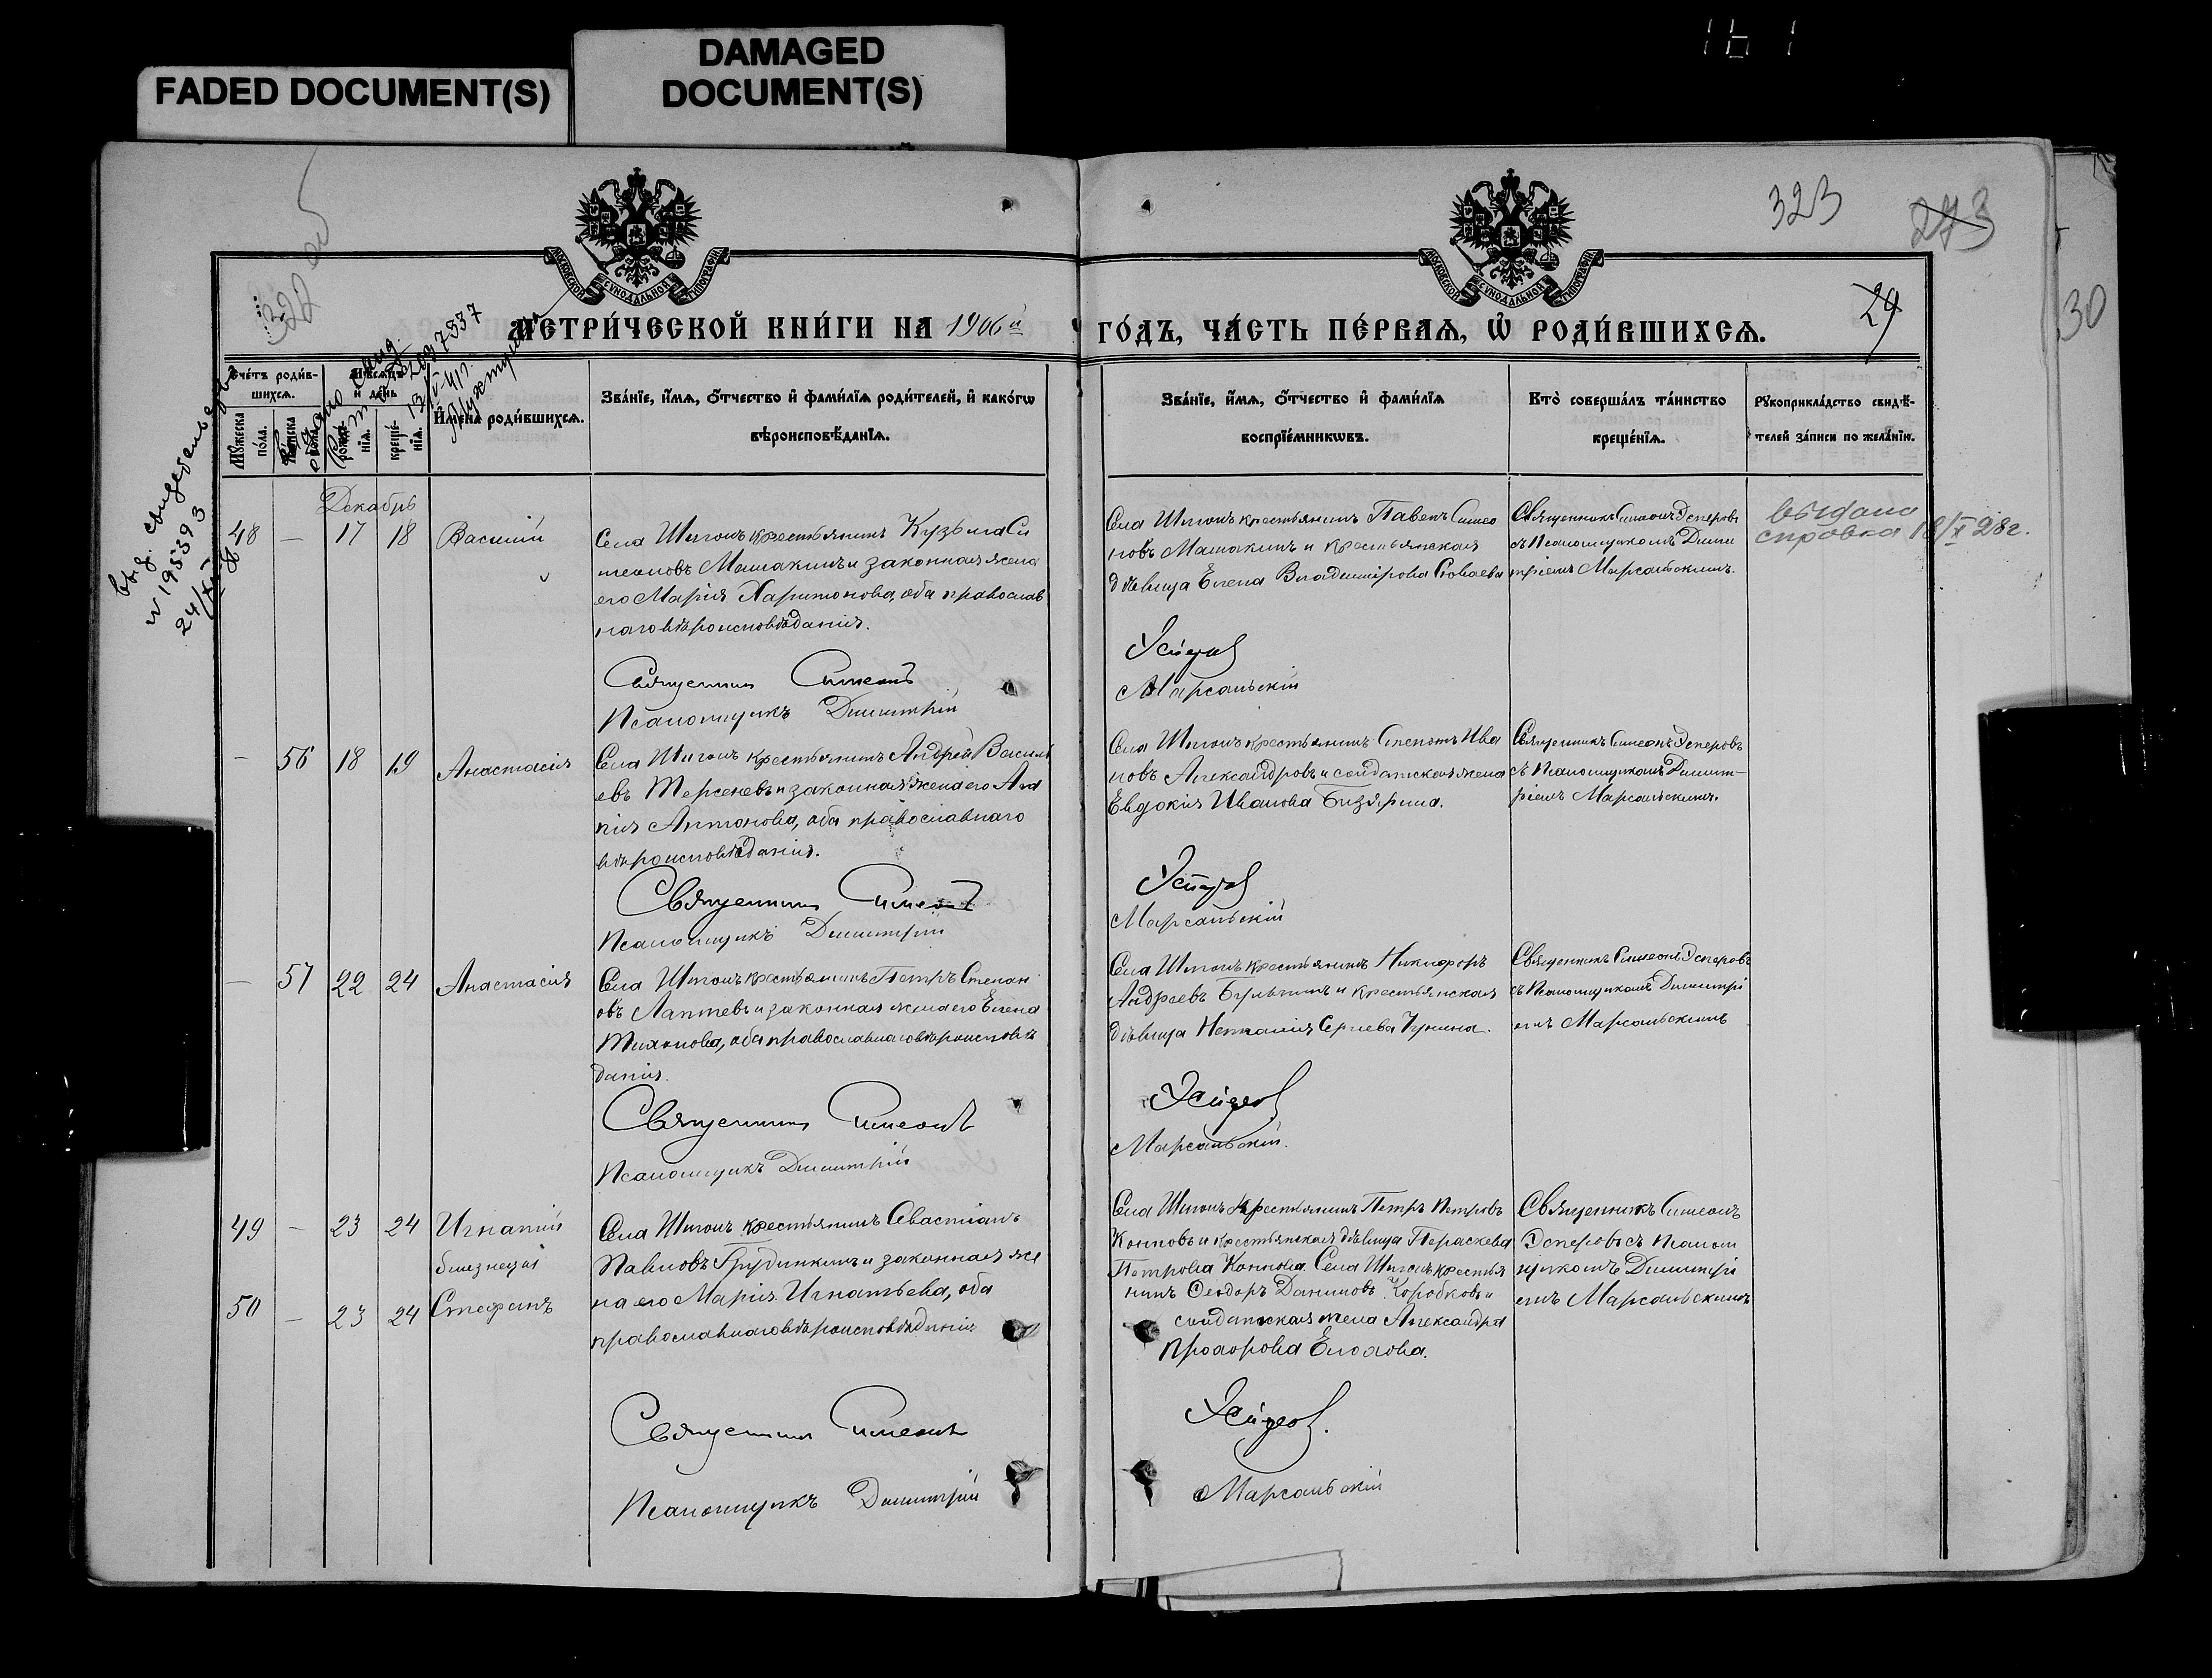 FADED DOCUMENT(S)
DAMAGED
DOCUMENT(S)
322
323
273
29
30
МОСКОВСКОЙ СѴНОДАЛЬНОЙ ТИПОГРАФІИ
МОСКОВСКОЙ СѴНОДАЛЬНОЙ ТИПОГРАФІИ
МЕТРИ́ЧЕСКОЙ КНИ́ГИ НА 1906й
ГО́ДЪ, ЧА́СТЬ ПЕ́РВАѦ, Ѿ РОДИ́ВШИХСѦ.
Счетъ роди́в-
шихсѧ.
Мꙋжеска
по́ла.
Мѣсѧцъ
и҆ де́нь
рожде-
нїѧ.
креще́-
нїѧ.
И҆мена̀ роди́вшихсѧ.
Зва́нїе, и҆́мѧ, ѻ҆́тчество и҆ фами́лїѧ роди́телей, и҆ како́гѡ
вѣроисповѣ́данїѧ.
Зва́нїе, и҆́мѧ, ѻ҆́тчество и҆ фами́лїѧ
воспрїе́мникѡвъ.
Кто̀ соверша́лъ та́инство
креще́нїѧ.
Рꙋкоприкла́дство свидѣ́-
телей за́писи по жела́нїю.
выд. свидетельство
№ 195393
24/XI
Декабрь
48 — 17 18 Василій
Села Шигонъ крестьянинъ Кузьма Си
меоновъ Машакинъ и законная жена
его Марія Харитонова, оба православ
наго вѣроисповѣданія.
Священникъ Симеонъ
Псаломщикъ Димитрій
Села Шигонъ крестьянинъ Павелъ Симео
новъ Машакинъ и крестьянская
дѣвица Елена Владимірова
Эсперовъ
Марсальскій
Священникъ Симеонъ Эсперовъ
съ Псаломщикомъ Дими
тріемъ Марсальскимъ.
выдана
справка 18/X 28г.
— 56 18 19 Анастасія
Села Шигонъ крестьянинъ Андрей Василь
евъ Терсеневъ и законная жена его Ага
пія Антонова, оба православнаго
вѣроисповѣданія.
Священникъ Симеонъ
Псаломщикъ Димитрій
Села Шигонъ крестьянинъ Степанъ Ива
новъ Александровъ и солдатская жена
Евдокія Иванова Бизярина.
Эсперовъ
Марсальскій
Священникъ Симеонъ Эсперовъ
съ Псаломщикомъ Димит-
ріемъ Марсальскимъ.
— 57 22 24 Анастасія
Села Шигонъ крестьянинъ Петръ Степан
овъ Лаптевъ и законная жена его Елена
Тихонова, оба православнаго вѣроисповѣ
данія.
Священникъ Симеонъ
Псаломщикъ Димитрій
Села Шигонъ крестьянинъ Никифоръ
Андреевъ Булыгинъ и крестьянская
дѣвица Наталія Сергѣева Чернина.
Эсперовъ
Марсальскій.
Священникъ Симеонъ Эсперовъ
съ Псаломщикомъ Димитрі
емъ Марсальскимъ
49 — 23 24 Игнатій
близнецы
50 — 23 24 Стефанъ
Села Шигонъ крестьянинъ Севастіанъ
Павловъ Грудинкинъ и законная же
на его Марія Игнатьева, оба
православнаго вѣроисповѣданія
Священникъ Симеонъ
Псаломщикъ Димитрій
Села Шигонъ крестьянинъ Петръ Петровъ
Конновъ и крестьянская дѣвица Параскева
Петрова Коннова. Села Шигонъ крестья
нинъ Ѳеодоръ Даниловъ Коробковъ и
солдатская жена Александра
Прохорова Елохова.
Эсперовъ.
Марсальскій
Священникъ Симеонъ
Эсперовъ съ Псалом
щикомъ Димитрі
емъ Марсальскимъ